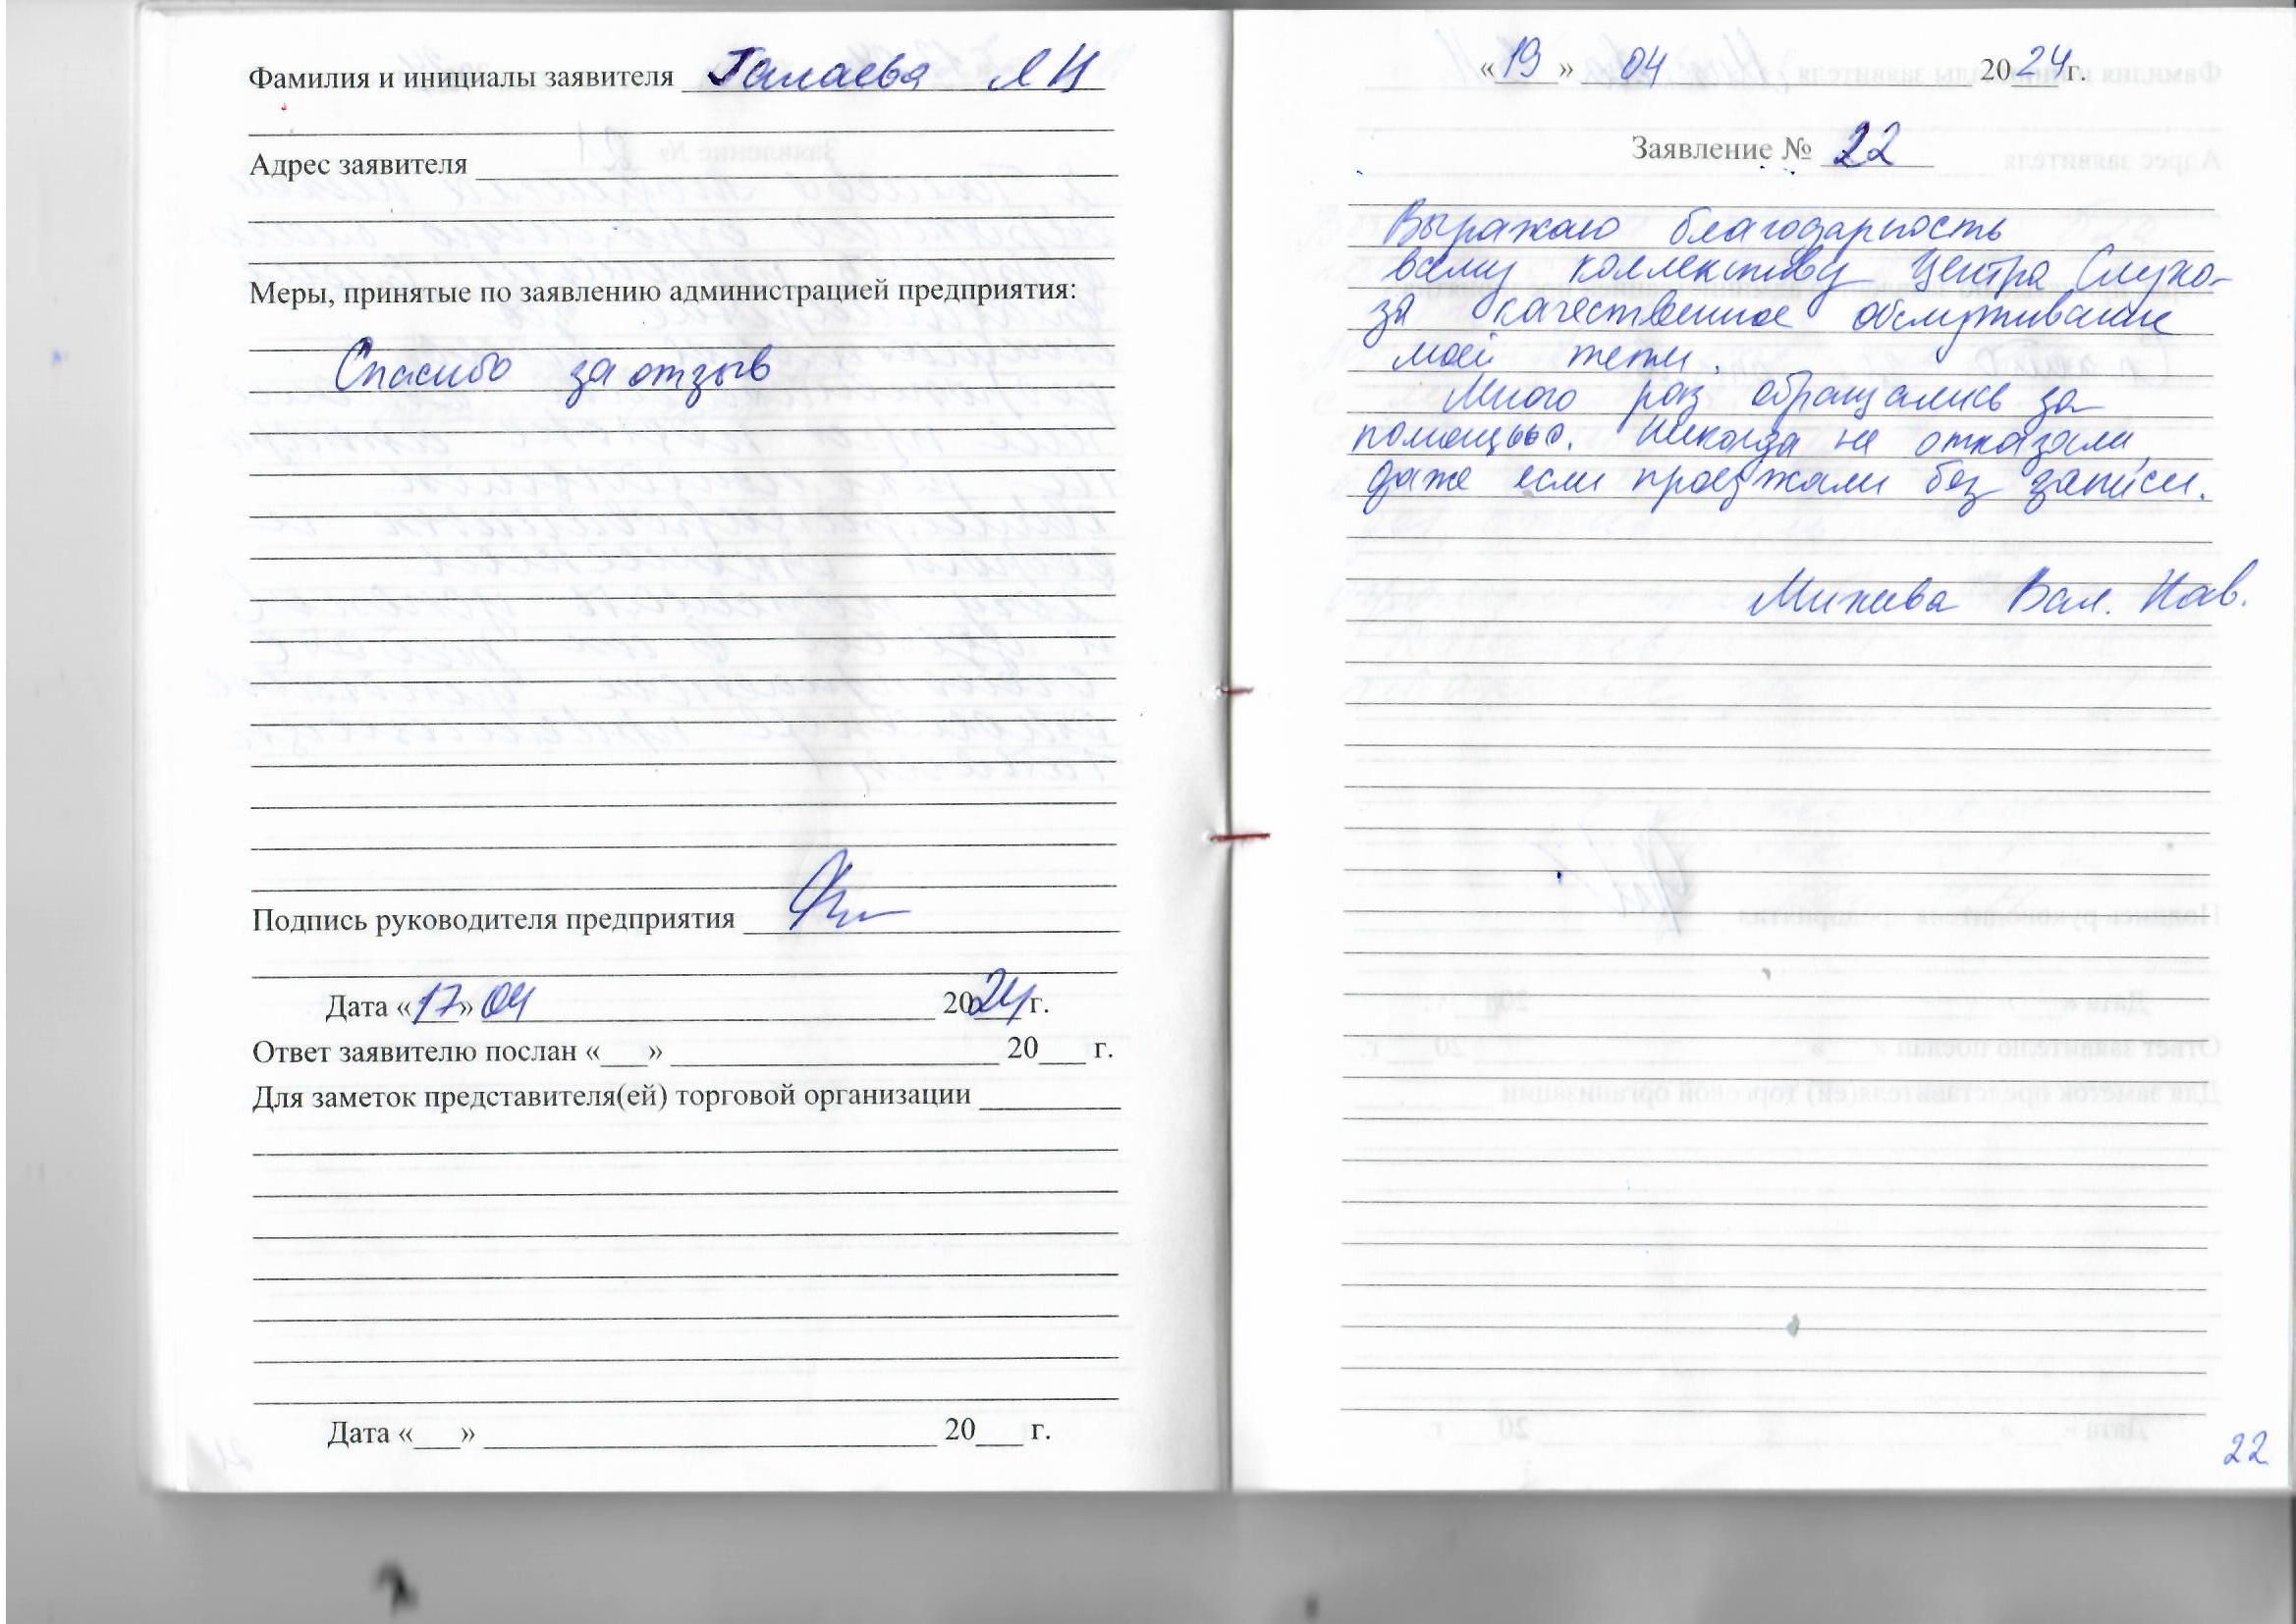 Фамилия и инициалы заявителя Галаева Л Н
Адрес заявителя
Меры, принятые по заявлению администрацией предприятия:
Спасибо за отзыв
Подпись руководителя предприятия
Дата «17» 04 2024 г.
Ответ заявителю послан «___» 20___ г.
Для заметок представителя(ей) торговой организации
Дата «___» 20___ г.
«19» 04 2024г.
Заявление № 22
Выражаю благодарность
всему коллективу Центра Слуха
за качественное обслуживание
моей тети.
Много раз обращались за
помощью. Никогда не отказали,
даже если проезжали без записи.
Вал. Пав.
22